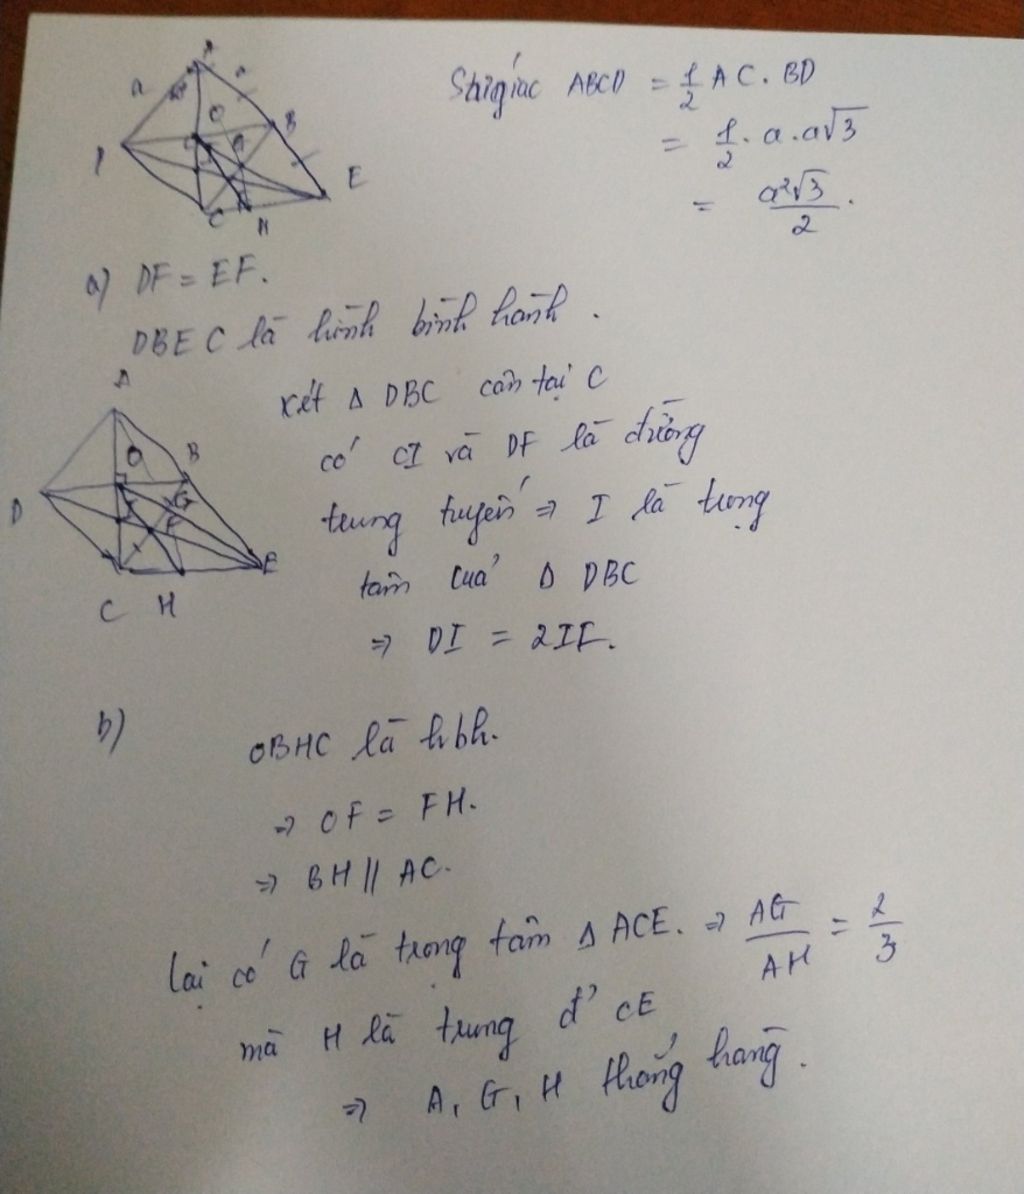 A
a
a
60°
O
B
D
G
I
E
C
H
Stứ giác ABCD = 1/2 AC. BD
= 1/2 . a . a√3
= a²√3/2 .
a) DF = EF.
DBEC là hình bình hành .
A
O
B
D
G
I
F
E
C H
xét Δ DBC cân tại C
có CI và DF là đường
trung tuyến ⇒ I là trọng
tâm của Δ DBC
⇒ DI = 2IF.
b)
OBHC là hbh.
⇒ OF = FH.
⇒ BH // AC.
lại có G là trọng tâm Δ ACE. ⇒ AG/AH = 2/3
mà H là trung đ' CE
⇒ A, G, H thẳng hàng .